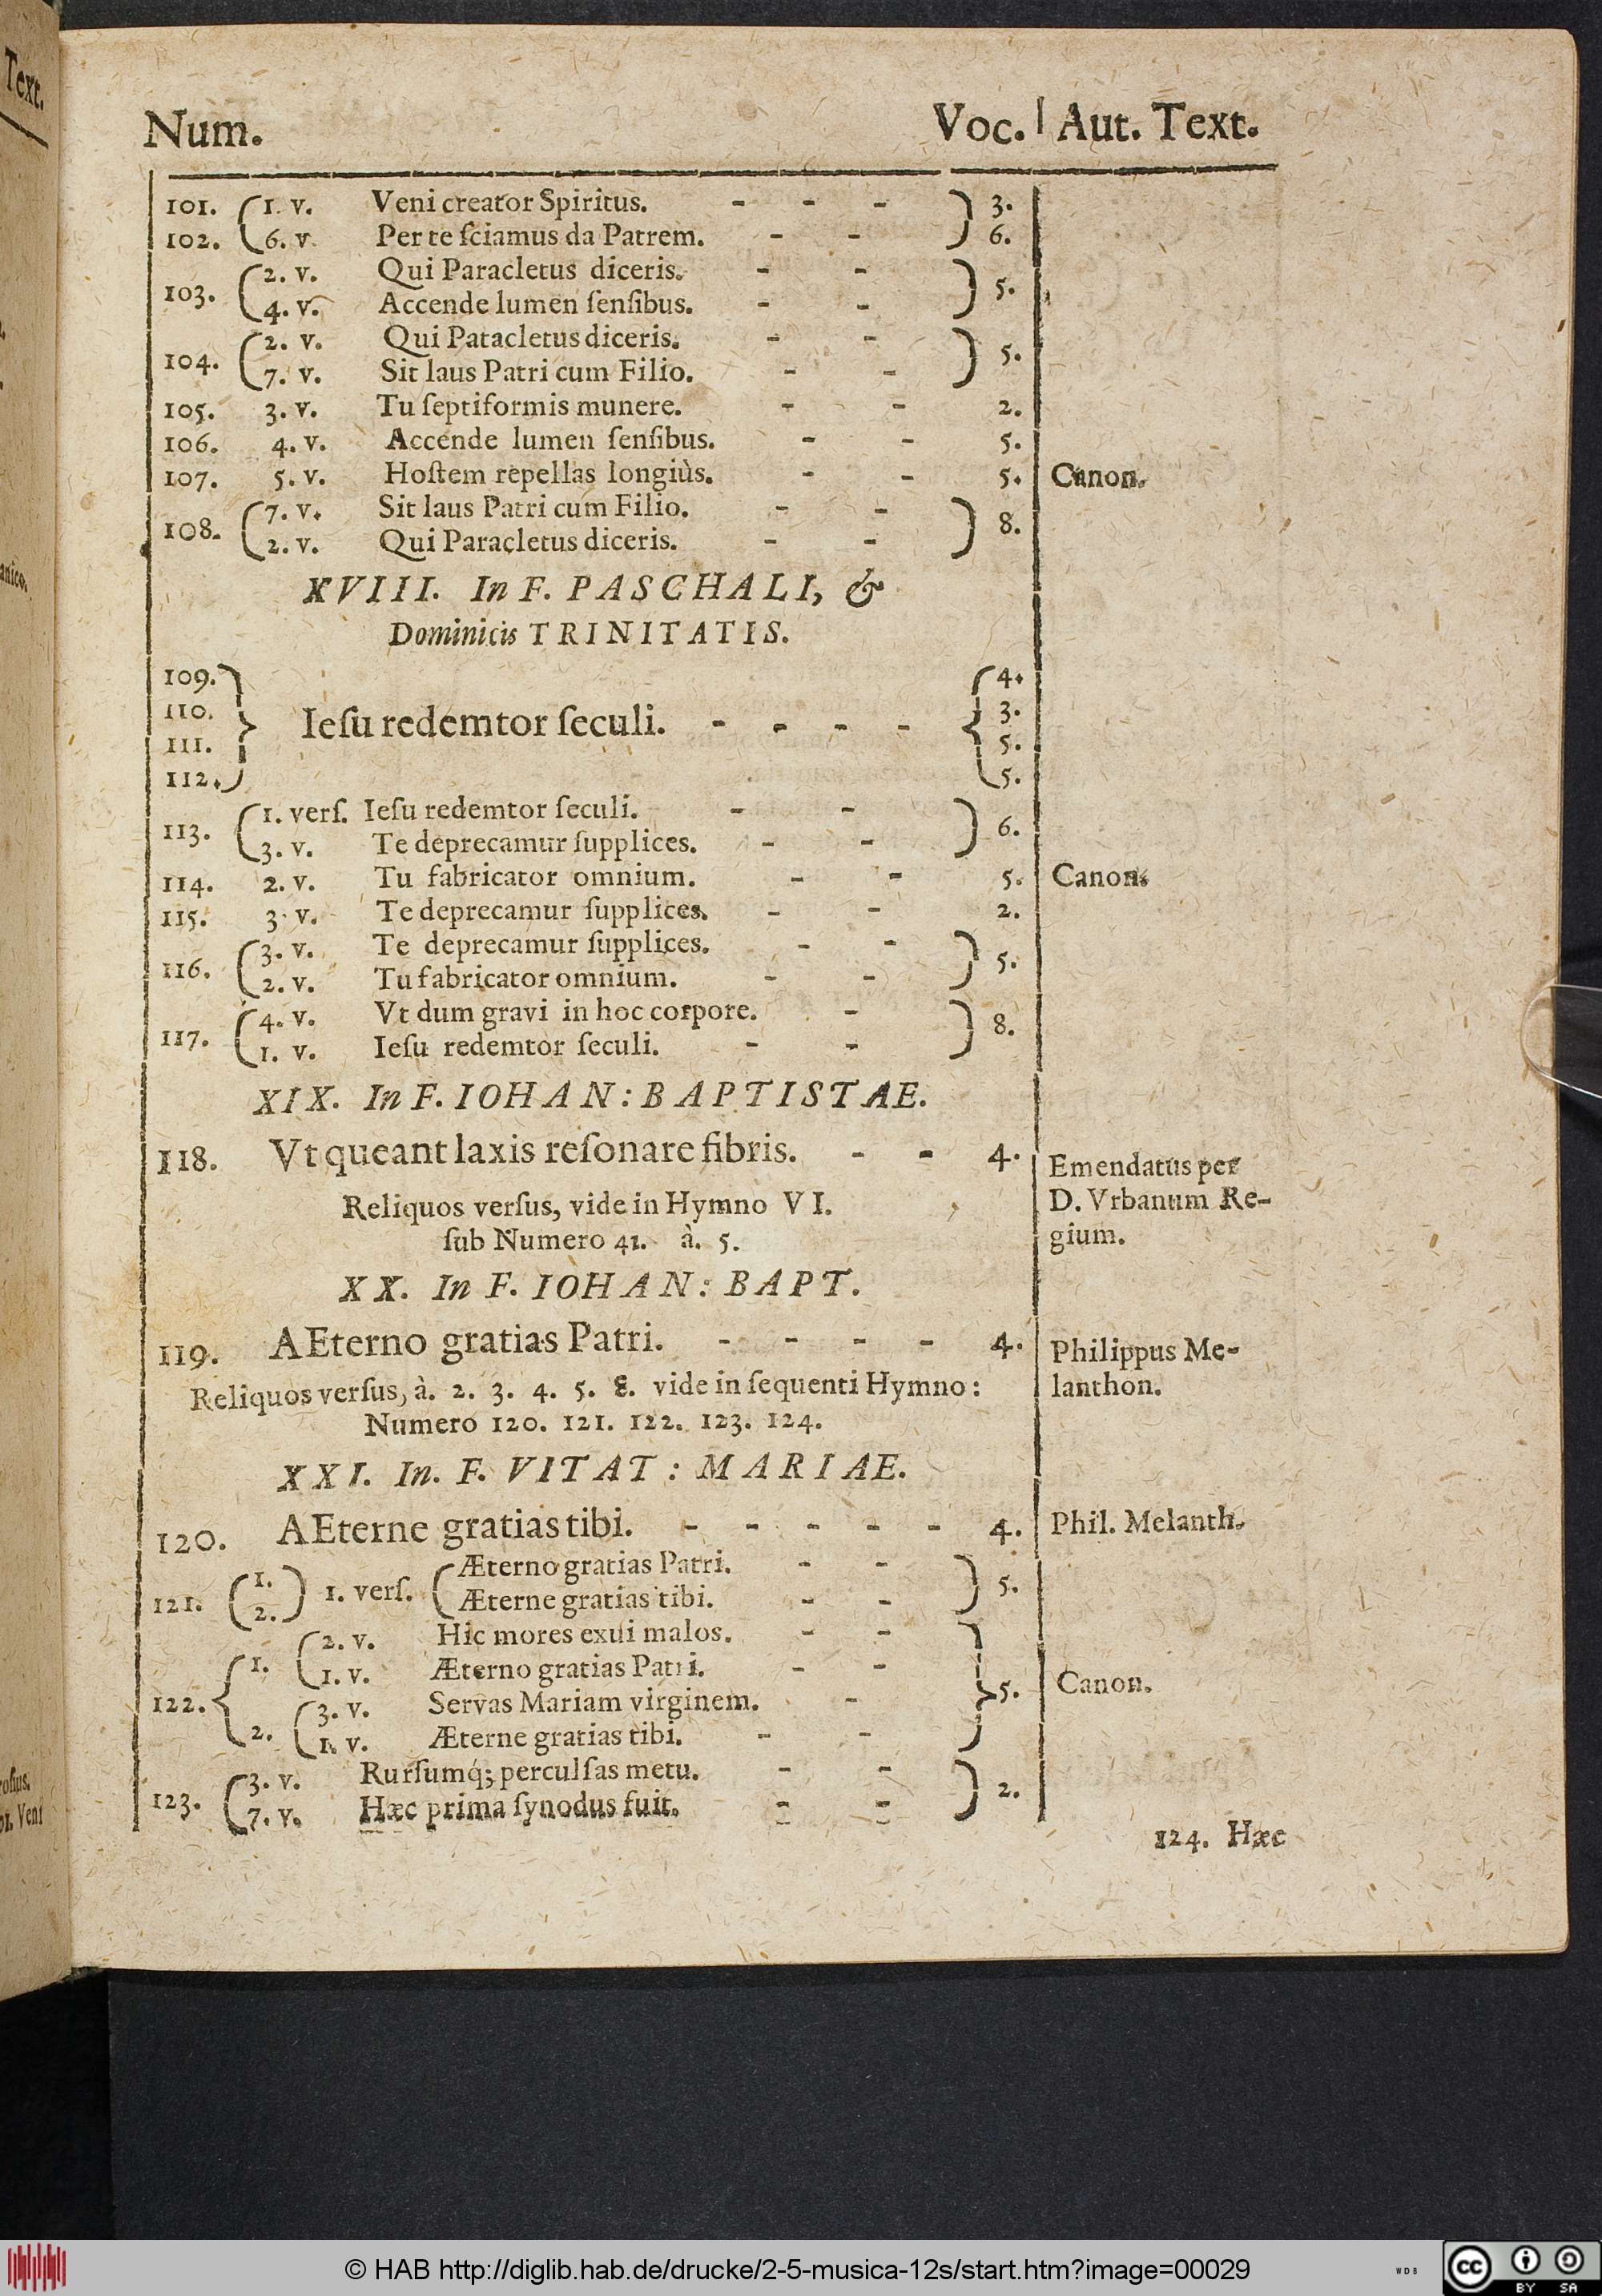 Text.
Num. Voc. | Aut. Text.
101. 1. v. Veni creator Spiritus. - - - 3.
102. 6. v. Per te ſciamus da Patrem. - - 6.
103. 2. v. Qui Paracletus diceris. - - 5.
4. v. Accende lumen ſenſibus. - -
104. 2. v. Qui Patacletus diceris. - - 5.
7. v. Sit laus Patri cum Filio. - -
105. 3. v. Tu ſeptiformis munere. - - 2.
106. 4. v. Accende lumen ſenſibus. - - 5.
107. 5. v. Hoſtem repellas longiùs. - - 5. Canon.
108. 7. v. Sit laus Patri cum Filio. - - 8.
2. v. Qui Paracletus diceris. - -
XVIII. In F. PASCHALI, &
Dominicis TRINITATIS.
109. 4.
110. 3.
Ieſu redemtor ſeculi. - - - -
111. 5.
112. 5.
113. 1. verſ. Ieſu redemtor ſeculi. - - 6.
3. v. Te deprecamur ſupplices. - -
114. 2. v. Tu fabricator omnium. - - 5. Canon.
115. 3. v. Te deprecamur ſupplices. - - 2.
116. 3. v. Te deprecamur ſupplices. - - 5.
2. v. Tu fabricator omnium. - -
117. 4. v. Vt dum gravi in hoc corpore. - 8.
1. v. Ieſu redemtor ſeculi. - -
XIX. In F. IOHAN: BAPTISTAE.
118. Vt queant laxis reſonare fibris. - - 4. Emendatus per
Reliquos verſus, vide in Hymno VI. D. Vrbanum Re-
ſub Numero 41. à. 5. gium.
XX. In F. IOHAN: BAPT.
119. AEterno gratias Patri. - - - - 4. Philippus Me-
Reliquos verſus, à. 2. 3. 4. 5. 8. vide in ſequenti Hymno: lanthon.
Numero 120. 121. 122. 123. 124.
XXI. In. F. VITAT: MARIAE.
120. AEterne gratias tibi. - - - - - 4. Phil. Melanth.
121. 1. 1. verſ. Æterno gratias Patri. - - 5.
2. Æterne gratias tibi. - -
122. 1. 2. v. Hic mores exui malos. - - 5. Canon.
1. v. Æterno gratias Patri. - -
2. 3. v. Servas Mariam virginem. -
1. v. Æterne gratias tibi. - -
123. 3. v. Rurſumq; perculſas metu. - - 2.
7. v. Hæc prima ſynodus fuit. - -
124. Hæc
© HAB http://diglib.hab.de/drucke/2-5-musica-12s/start.htm?image=00029
WDB
cc BY SA